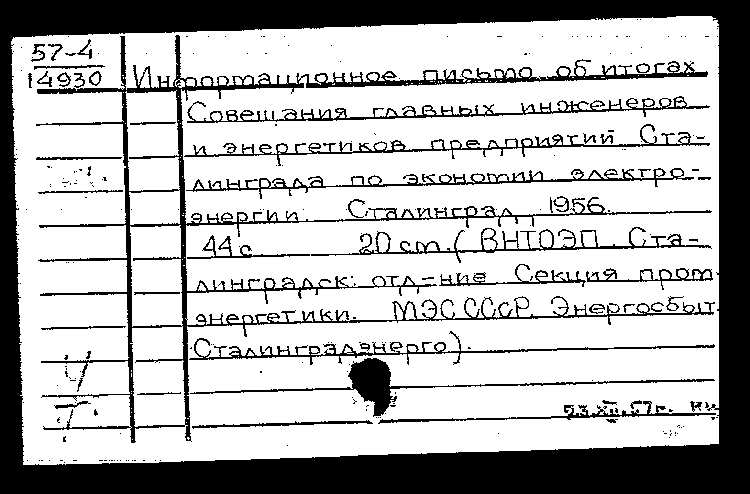 57-4
14930 Информационное письмо об итогах
Совещания главных инженеров
и энергетиков предприятий Ста-
линграда по экономии электро-
энергии. Сталинград, 1956.
44 с 20 см. (ВНТОЭП. Ста-
линградск. отд-ние Секция пром.
энергетики. МЭС СССР. Энергосбыт
Сталинградэнерго).
23.XII.57г.